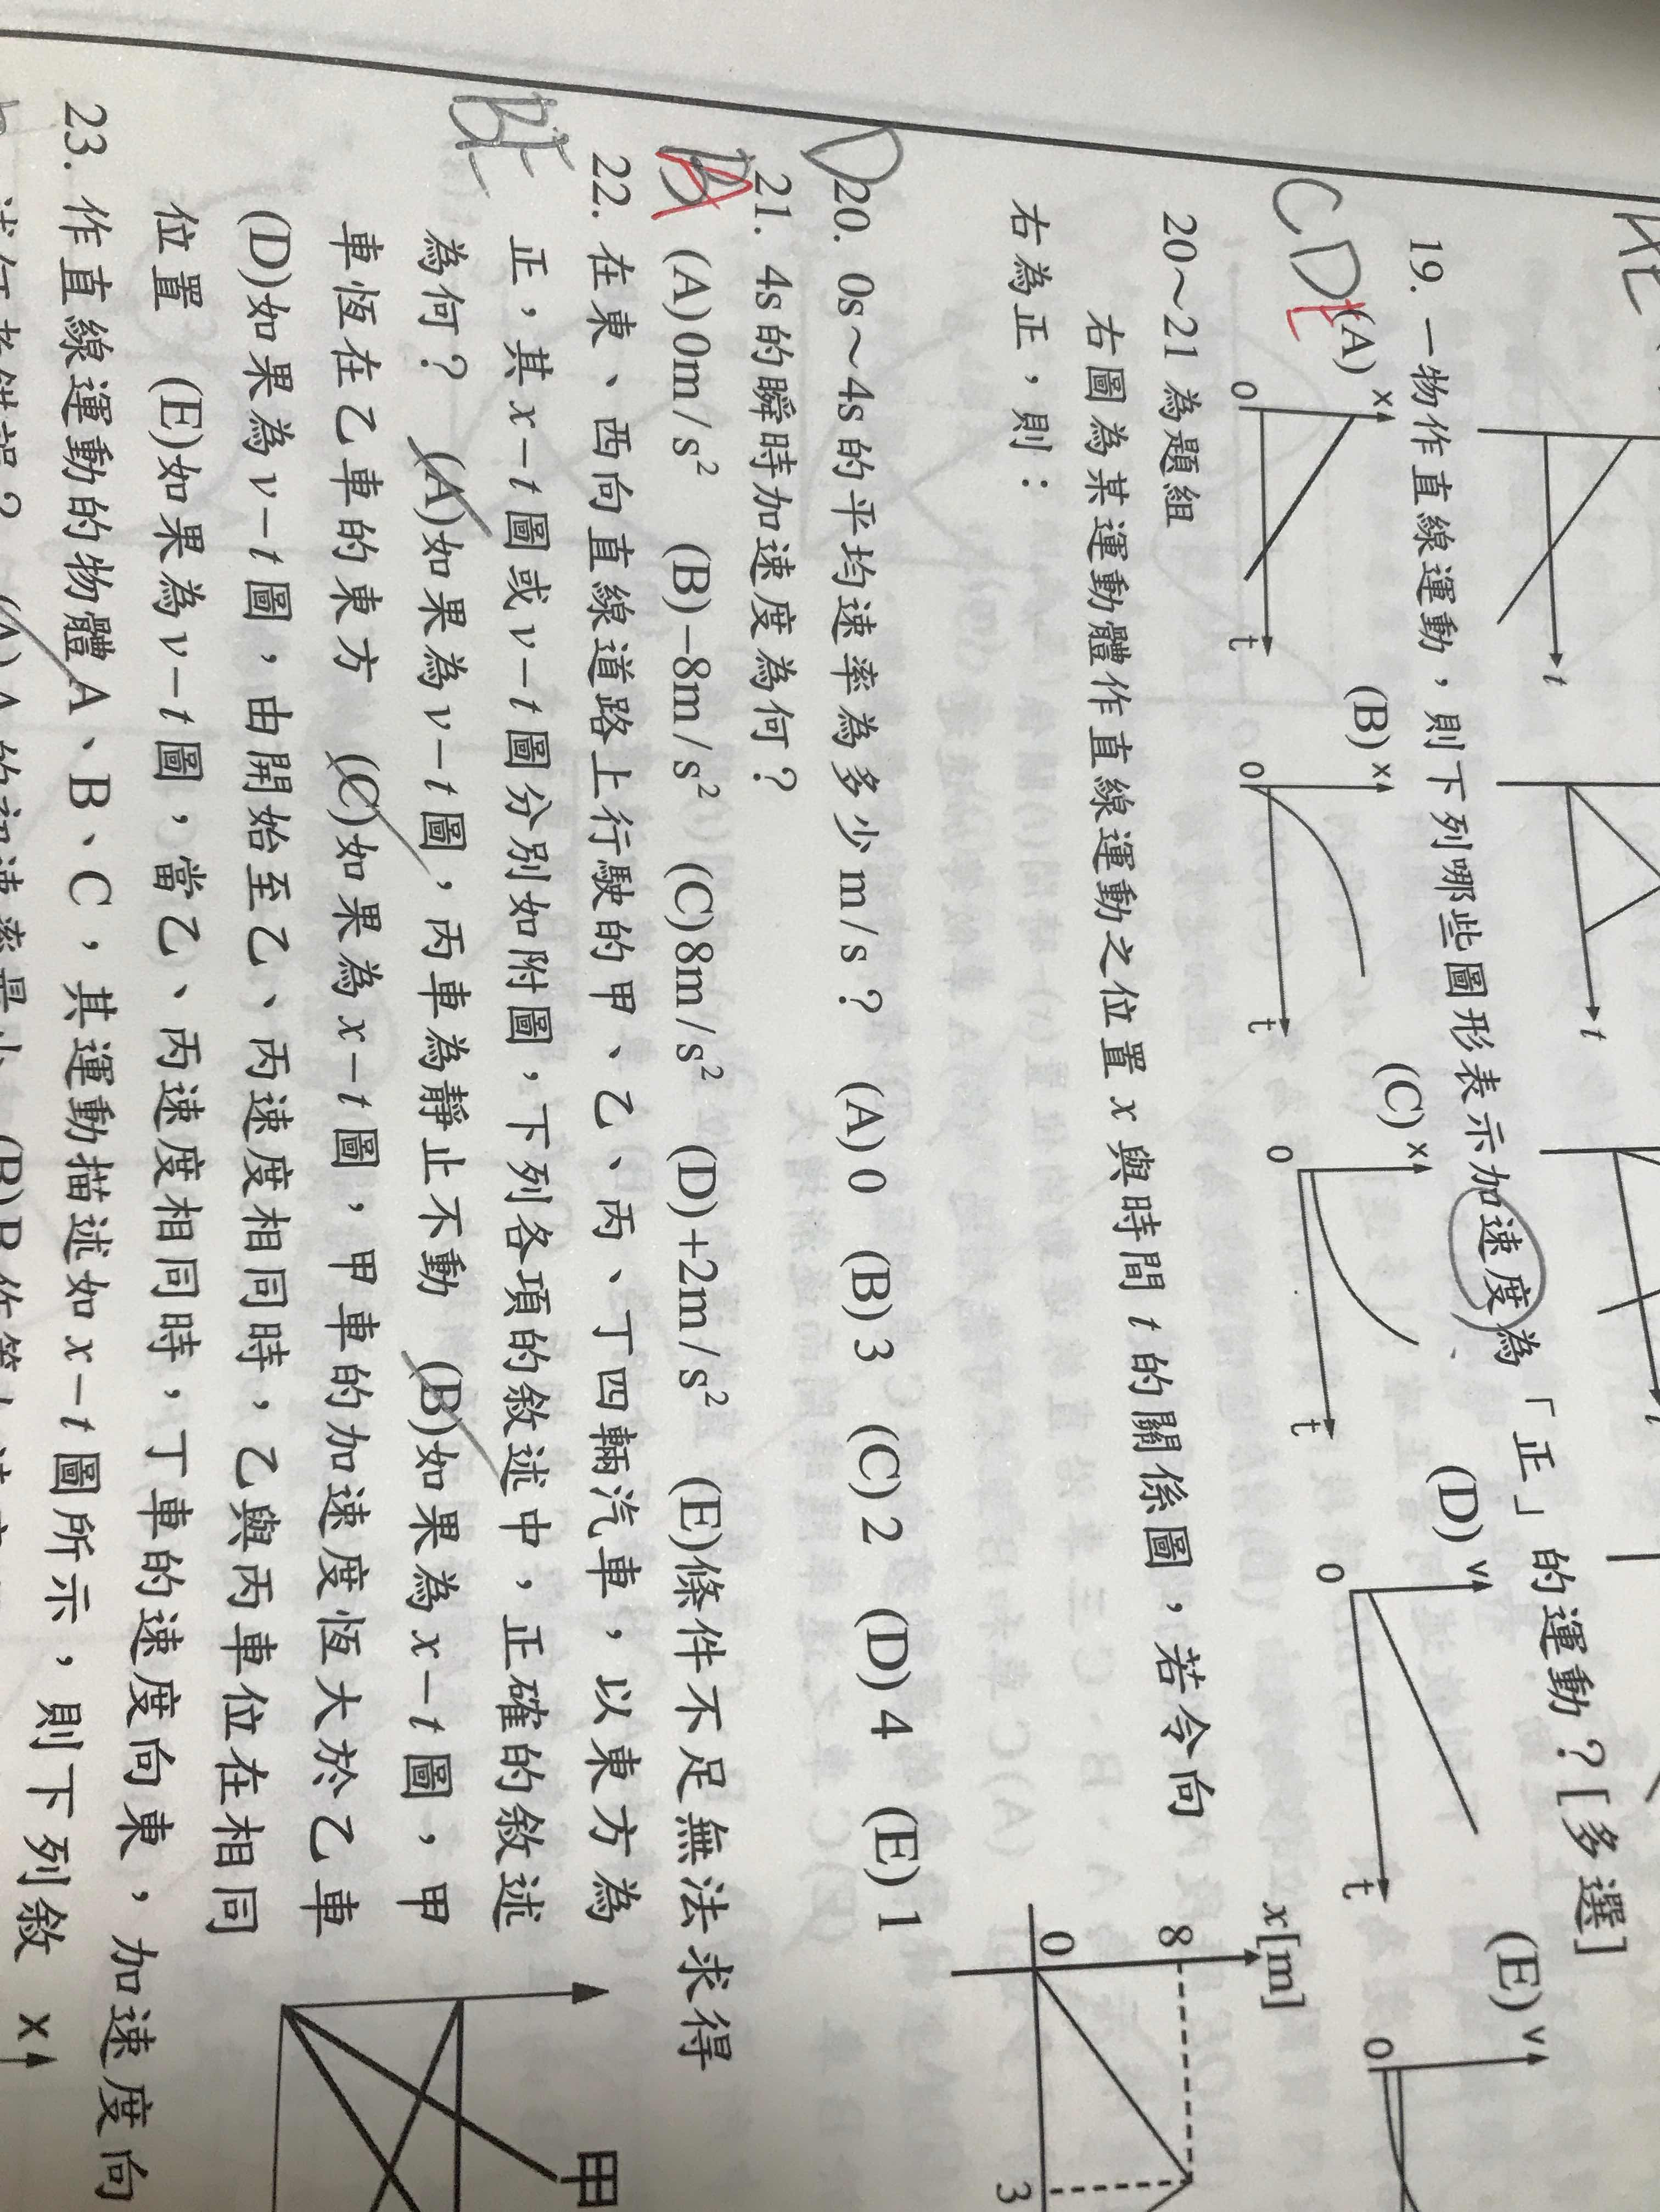 t
t
t
19. 一物作直線運動，則下列哪些圖形表示加速度為「正」的運動？[多選]
CDE
(A) x 0 t (B) x 0 t (C) x 0 t (D) v 0 t (E) v 0
20～21 為題組
右圖為某運動體作直線運動之位置 x 與時間 t 的關係圖，若令向
右為正，則：
x[m]
8
0
3
D
20. 0s～4s 的平均速率為多少 m/s？ (A) 0 (B) 3 (C) 2 (D) 4 (E) 1
21. 4s 的瞬時加速度為何？
A
(A) 0m/s² (B) −8m/s² (C) 8m/s² (D) +2m/s² (E)條件不足無法求得
22. 在東、西向直線道路上行駛的甲、乙、丙、丁四輛汽車，以東方為
BE
正，其 x−t 圖或 v−t 圖分別如附圖，下列各項的敘述中，正確的敘述
為何？ (A)如果為 v−t 圖，丙車為靜止不動 (B)如果為 x−t 圖，甲
車恆在乙車的東方 (C)如果為 x−t 圖，甲車的加速度恆大於乙車
(D)如果為 v−t 圖，由開始至乙、丙速度相同時，乙與丙車位在相同
位置 (E)如果為 v−t 圖，當乙、丙速度相同時，丁車的速度向東，加速度向
甲
23. 作直線運動的物體 A、B、C，其運動描述如 x−t 圖所示，則下列敘
x